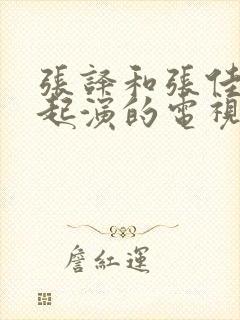 張譯和張佳
起演的電視
詹紅運